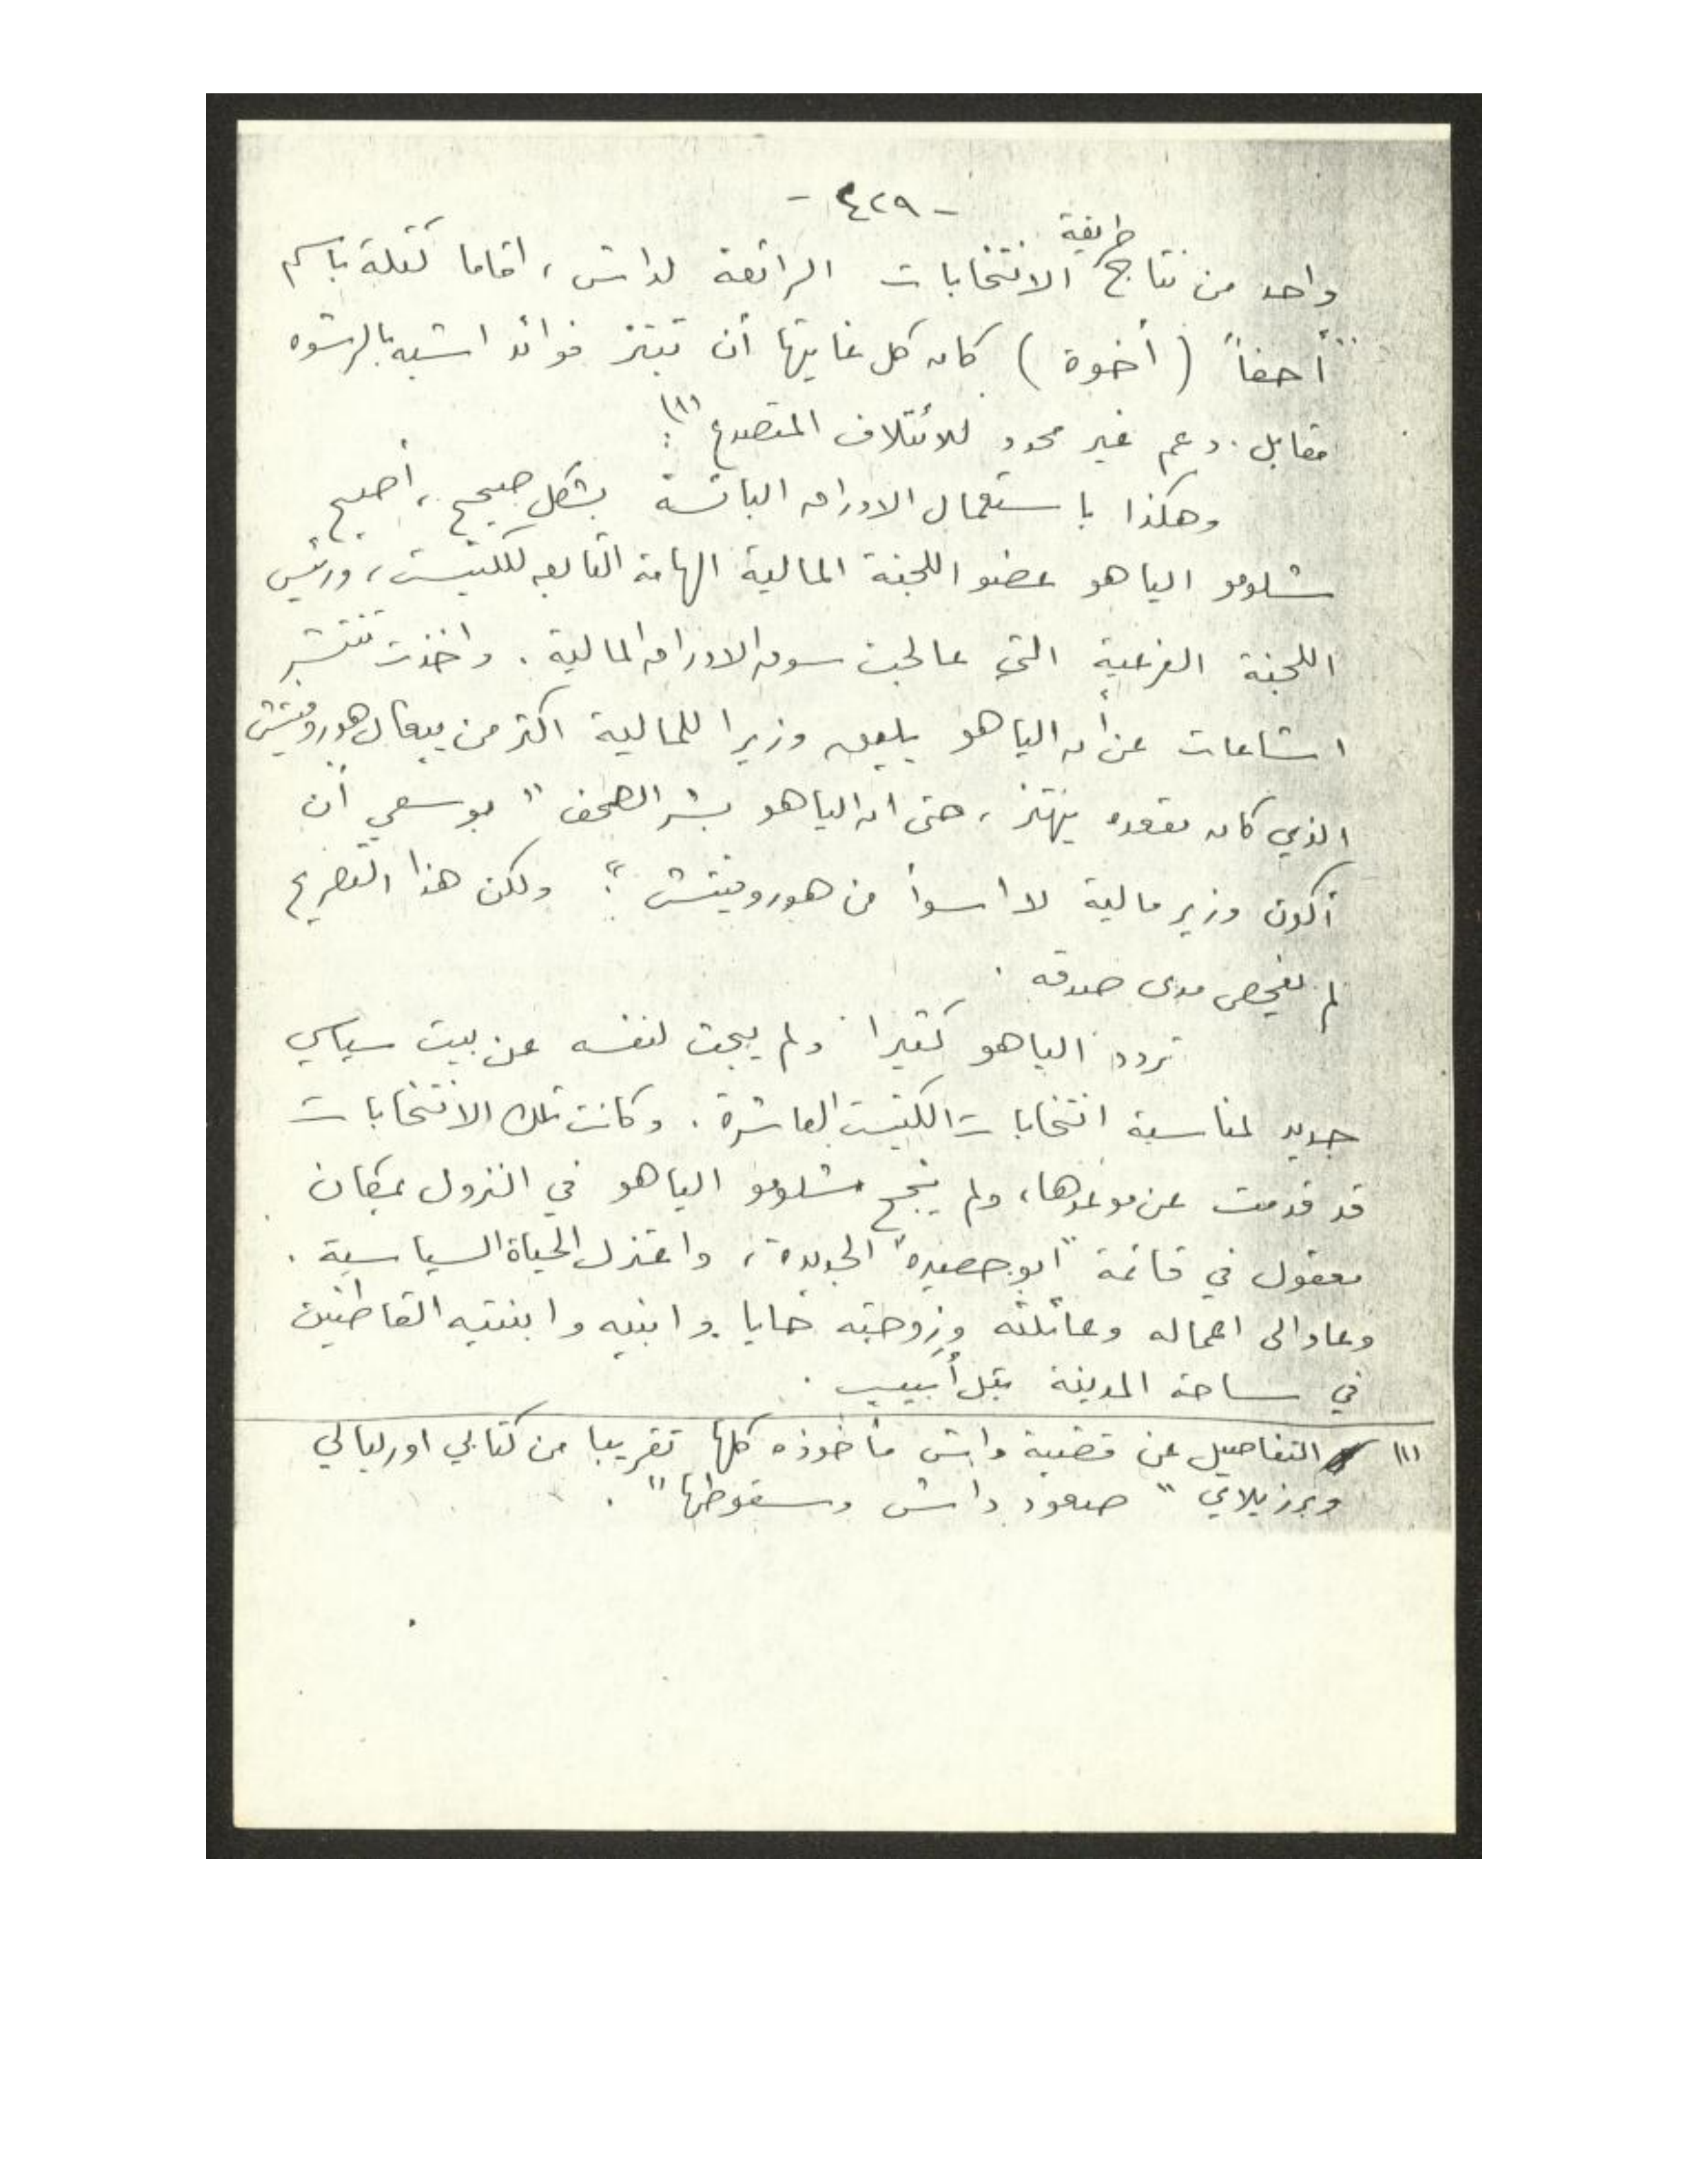 - ٤٢٩ -
طريقة
واحد من نتائج الانتخابات الرائعة لداش، اقاما كتلة باسم
"أحفا" (أخوة) كان كل غايتها أن تبتز فوائد اشبه بالرشوه
مقابل دعم غير محدود للائتلاف المتصدع (١).
وهكذا باستعمال الاوراق البائسة بشكل صحيح، أصبح
شلومو الياهو عضو اللجنة المالية الهامة التابعه للكنيست، ورئيس
اللجنة الفرعية التي عالجت سوق الاوراق المالية. واخذت تنتشر
اشاعات عن أن الياهو يليق وزيرا للمالية اكثر من ييغال هوروفيتش
الذي كان مقعده يهتز، حتى ان الياهو بشر الصحف "بوسعي أن
أكون وزير مالية لا أسوأ من هوروفيتش": ولكن هذا التصريح
لم يفحص مدى صدقه.
تردد الياهو كثيرا ولم يبحث لنفسه عن بيت سياسي
جديد لمناسبة انتخابات الكنيست العاشرة. وكانت تلك الانتخابات
قد قدمت عن موعدها، ولم ينجح شلومو الياهو في النزول بمكان
معقول في قائمة "ابو حصيره" الجديدة، واعتزل الحياة السياسية.
وعاد الى اعماله وعائلته وزوجته حايا وابنيه وابنتيه القاطنين
في ساحة المدينة بتل أبيب.
(١) التفاصيل عن قضية داش مأخوذه كلها تقريبا من كتابي اوريالي
وبرزيلاي "صعود داش وسقوطها".